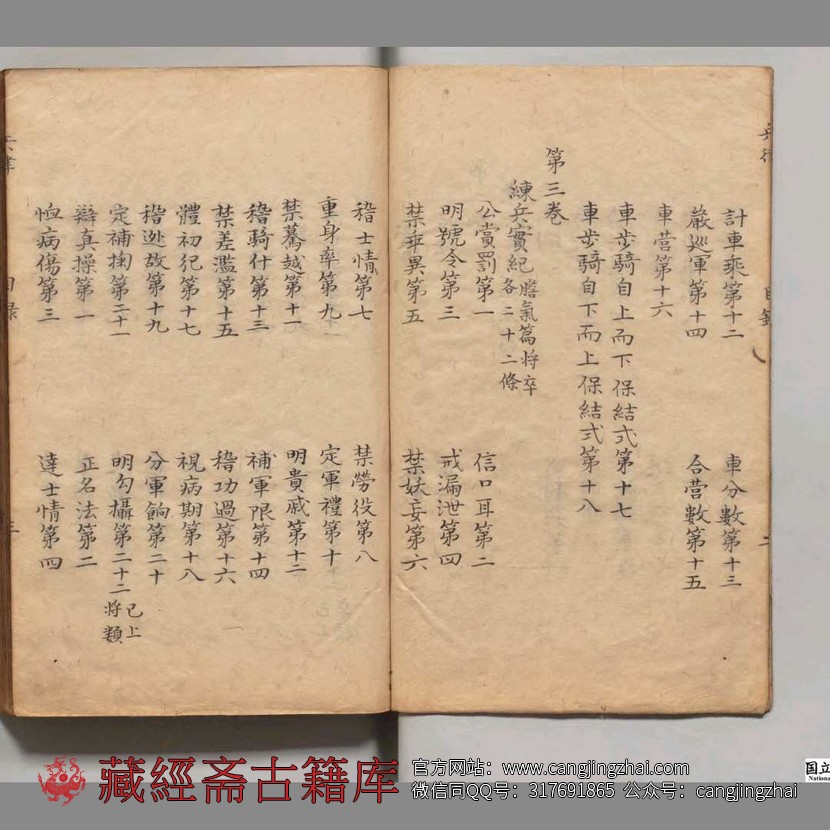 計車乘第十二 車分數第十三
嚴巡軍第十四 合營數第十五
車營第十六
車步騎自上而下保結式第十七
車步騎自下而上保結式第十八
第三卷
練兵實紀 膽氣篇將卒各二十二條
公賞罰第一 信口耳第二
明號令第三 戒漏泄第四
禁乖異第五 禁妖妄第六
稽士情第七 禁勞役第八
重身率第九 定軍禮第十
禁驀越第十一 明貴戚第十二
稽騎什第十三 補軍限第十四
禁差濫第十五 稽功過第十六
體初犯第十七 視病期第十八
稽逃故第十九 分軍餉第二十
定補掬第二十一 明勾攝第二十二 已上將類
辯真操第一 正名法第二
恤病傷第三 達士情第四
目錄 三
藏經斋古籍库
官方网站：www.cangjingzhai.com
微信同QQ号：317691865 公众号：cangjingzhai
国立
National